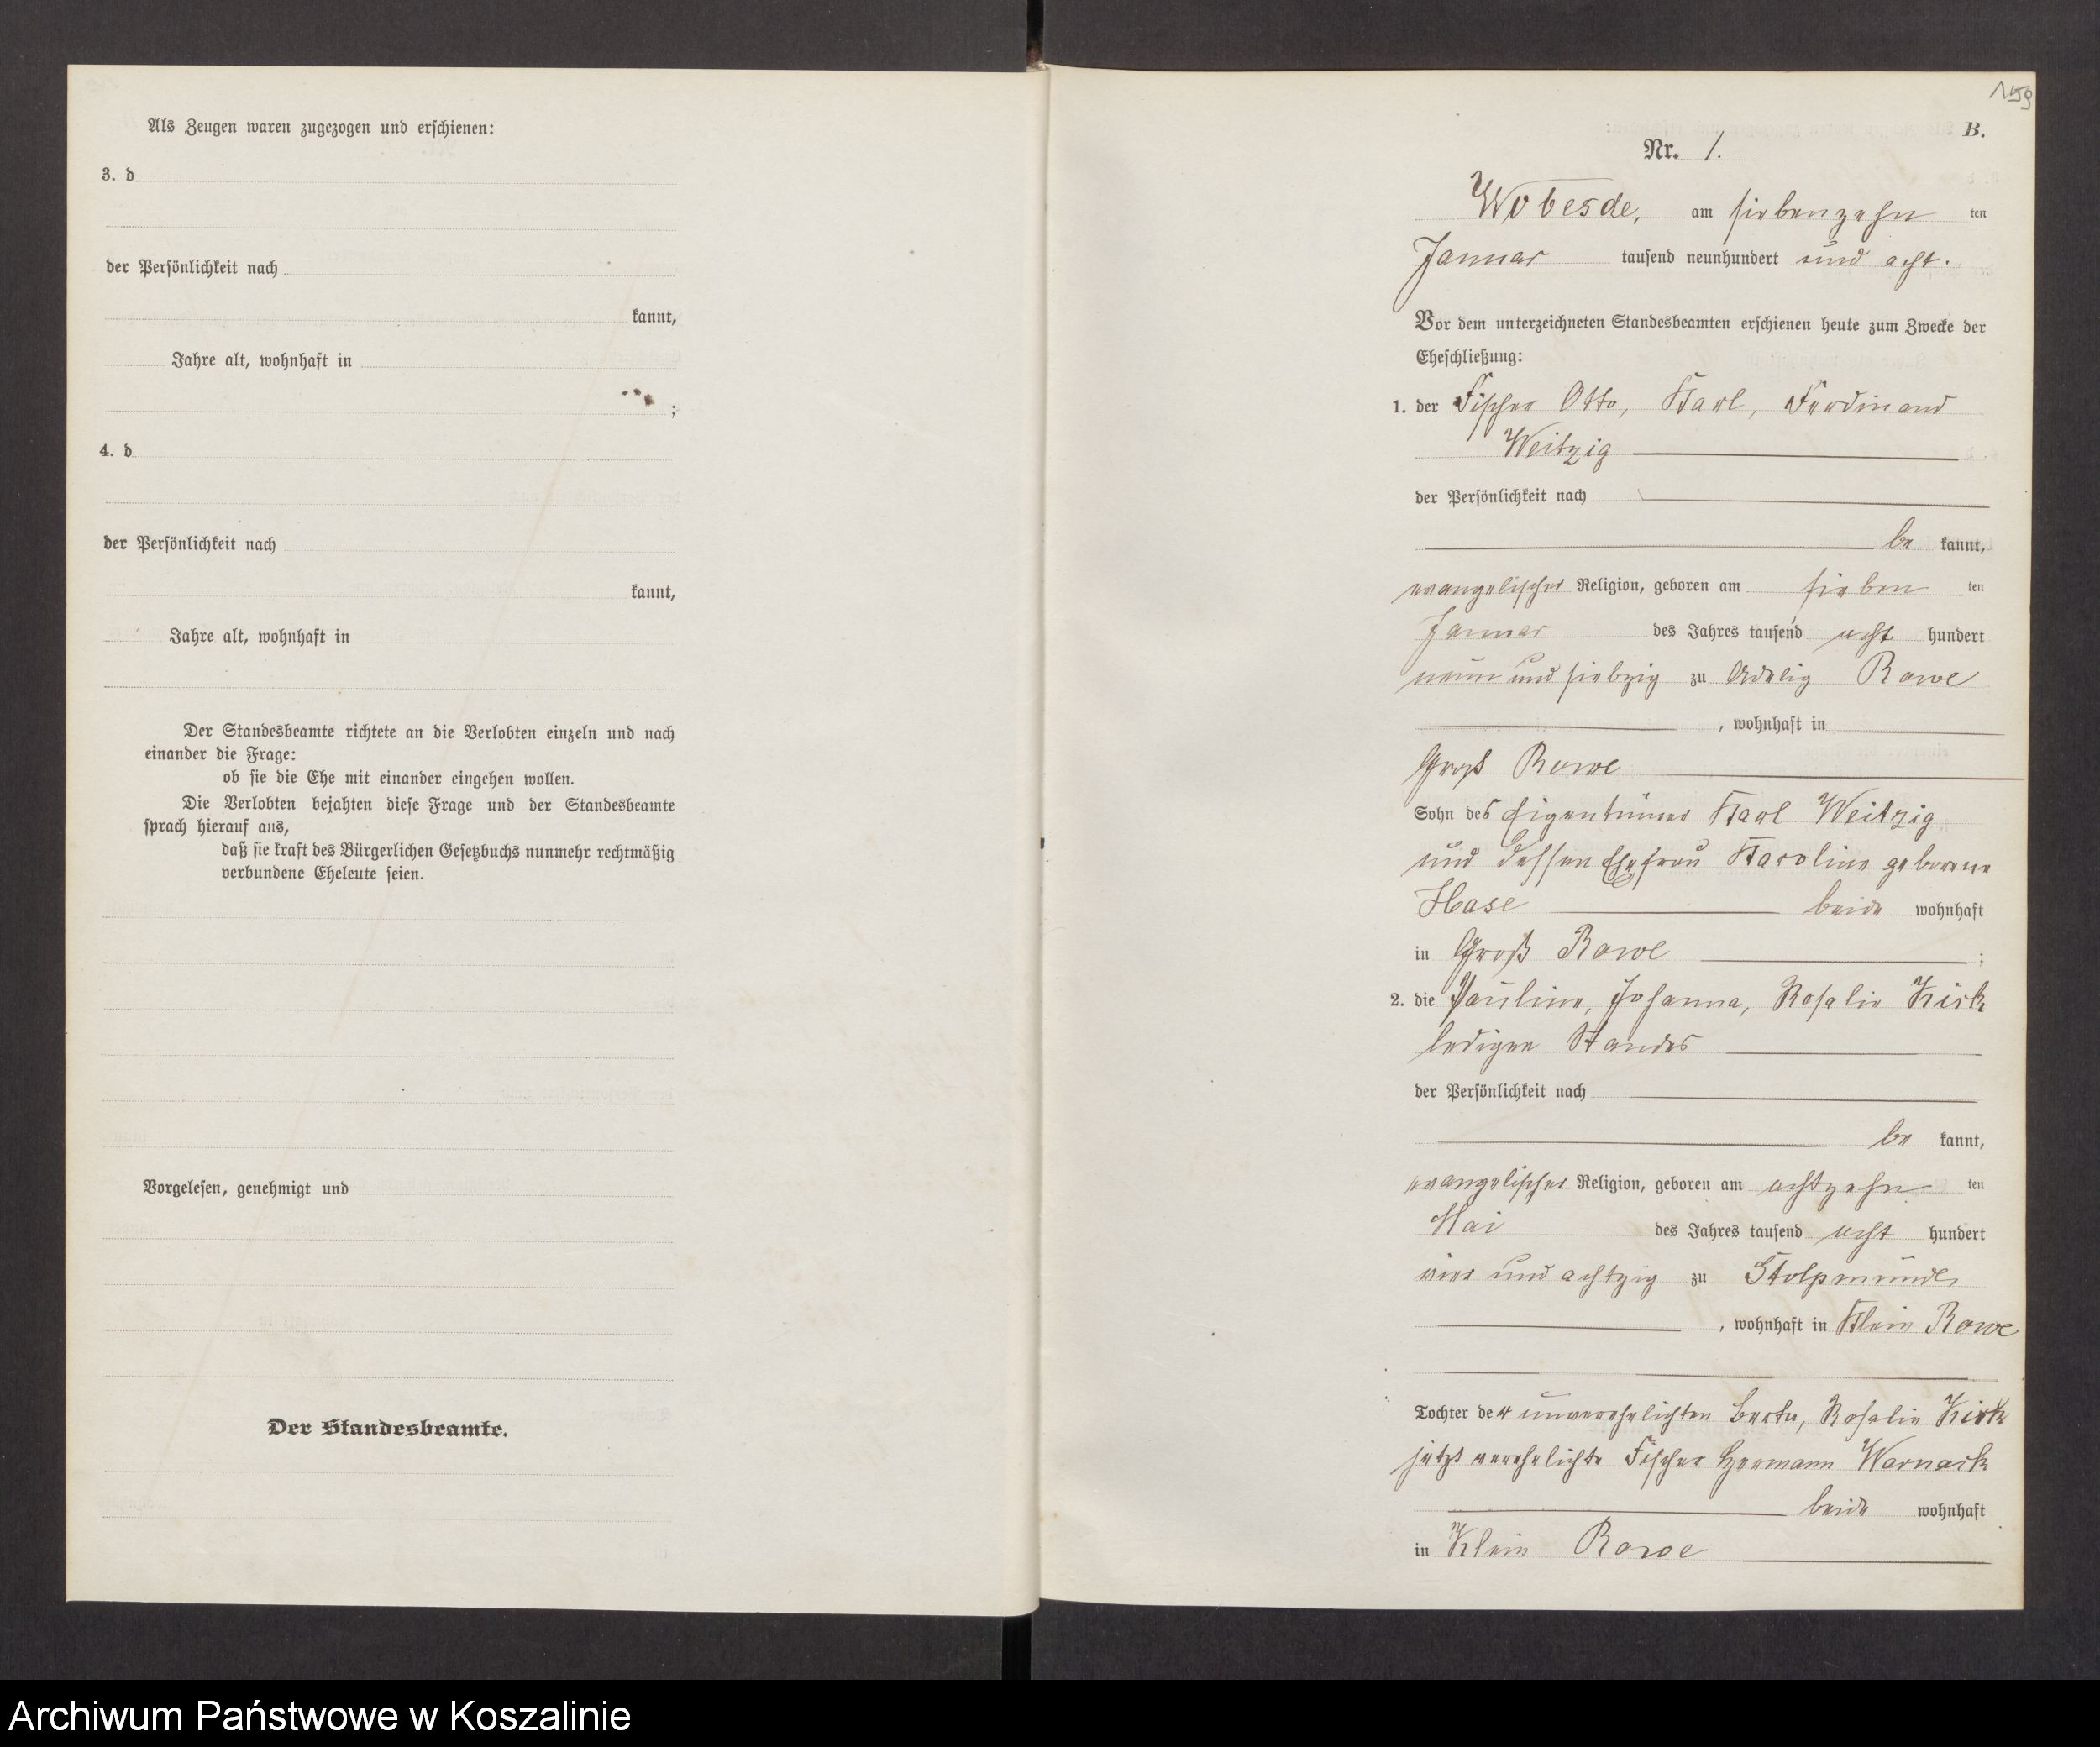 Als Zeugen waren zugezogen und erschienen:
3. d
der Persönlichkeit nach
kannt,
Jahre alt, wohnhaft in
;
4. d
der Persönlichkeit nach
kannt,
Jahre alt, wohnhaft in
Der Standesbeamte richtete an die Verlobten einzeln und nach
einander die Frage:
ob sie die Ehe mit einander eingehen wollen.
Die Verlobten bejahten diese Frage und der Standesbeamte
sprach hierauf aus,
daß sie kraft des Bürgerlichen Gesetzbuchs nunmehr rechtmäßig
verbundene Eheleute seien.
Vorgelesen, genehmigt und
Der Standesbeamte.
159
B.
Nr. 1.
Wobesde, am siebenzehn ten
Januar tausend neunhundert und acht.
Vor dem unterzeichneten Standesbeamten erschienen heute zum Zwecke der
Eheschließung:
1. der Fischer Otto, Karl, Ferdinand
Weitzig
der Persönlichkeit nach
be kannt,
evangelischer Religion, geboren am sieben ten
Januar des Jahres tausend acht hundert
neun und siebzig zu Adelig Rowe
, wohnhaft in
Groß Rowe
Sohn des Eigentümer Karl Weitzig
und dessen Ehefrau Karoline geborene
Hase beide wohnhaft
in Groß Rowe ;
2. die Pauline, Johanna, Rosalie Kirk
ledigen Standes
der Persönlichkeit nach
be kannt,
evangelischer Religion, geboren am achtzehn ten
Mai des Jahres tausend acht hundert
vier und achtzig zu Stolpmünde
, wohnhaft in Klein Rowe
Tochter der unverehelichten Berta, Rosalie Kirk
jetzt verehelichte Fischer Hermann Warnack
beide wohnhaft
in Klein Rowe
Archiwum Państwowe w Koszalinie